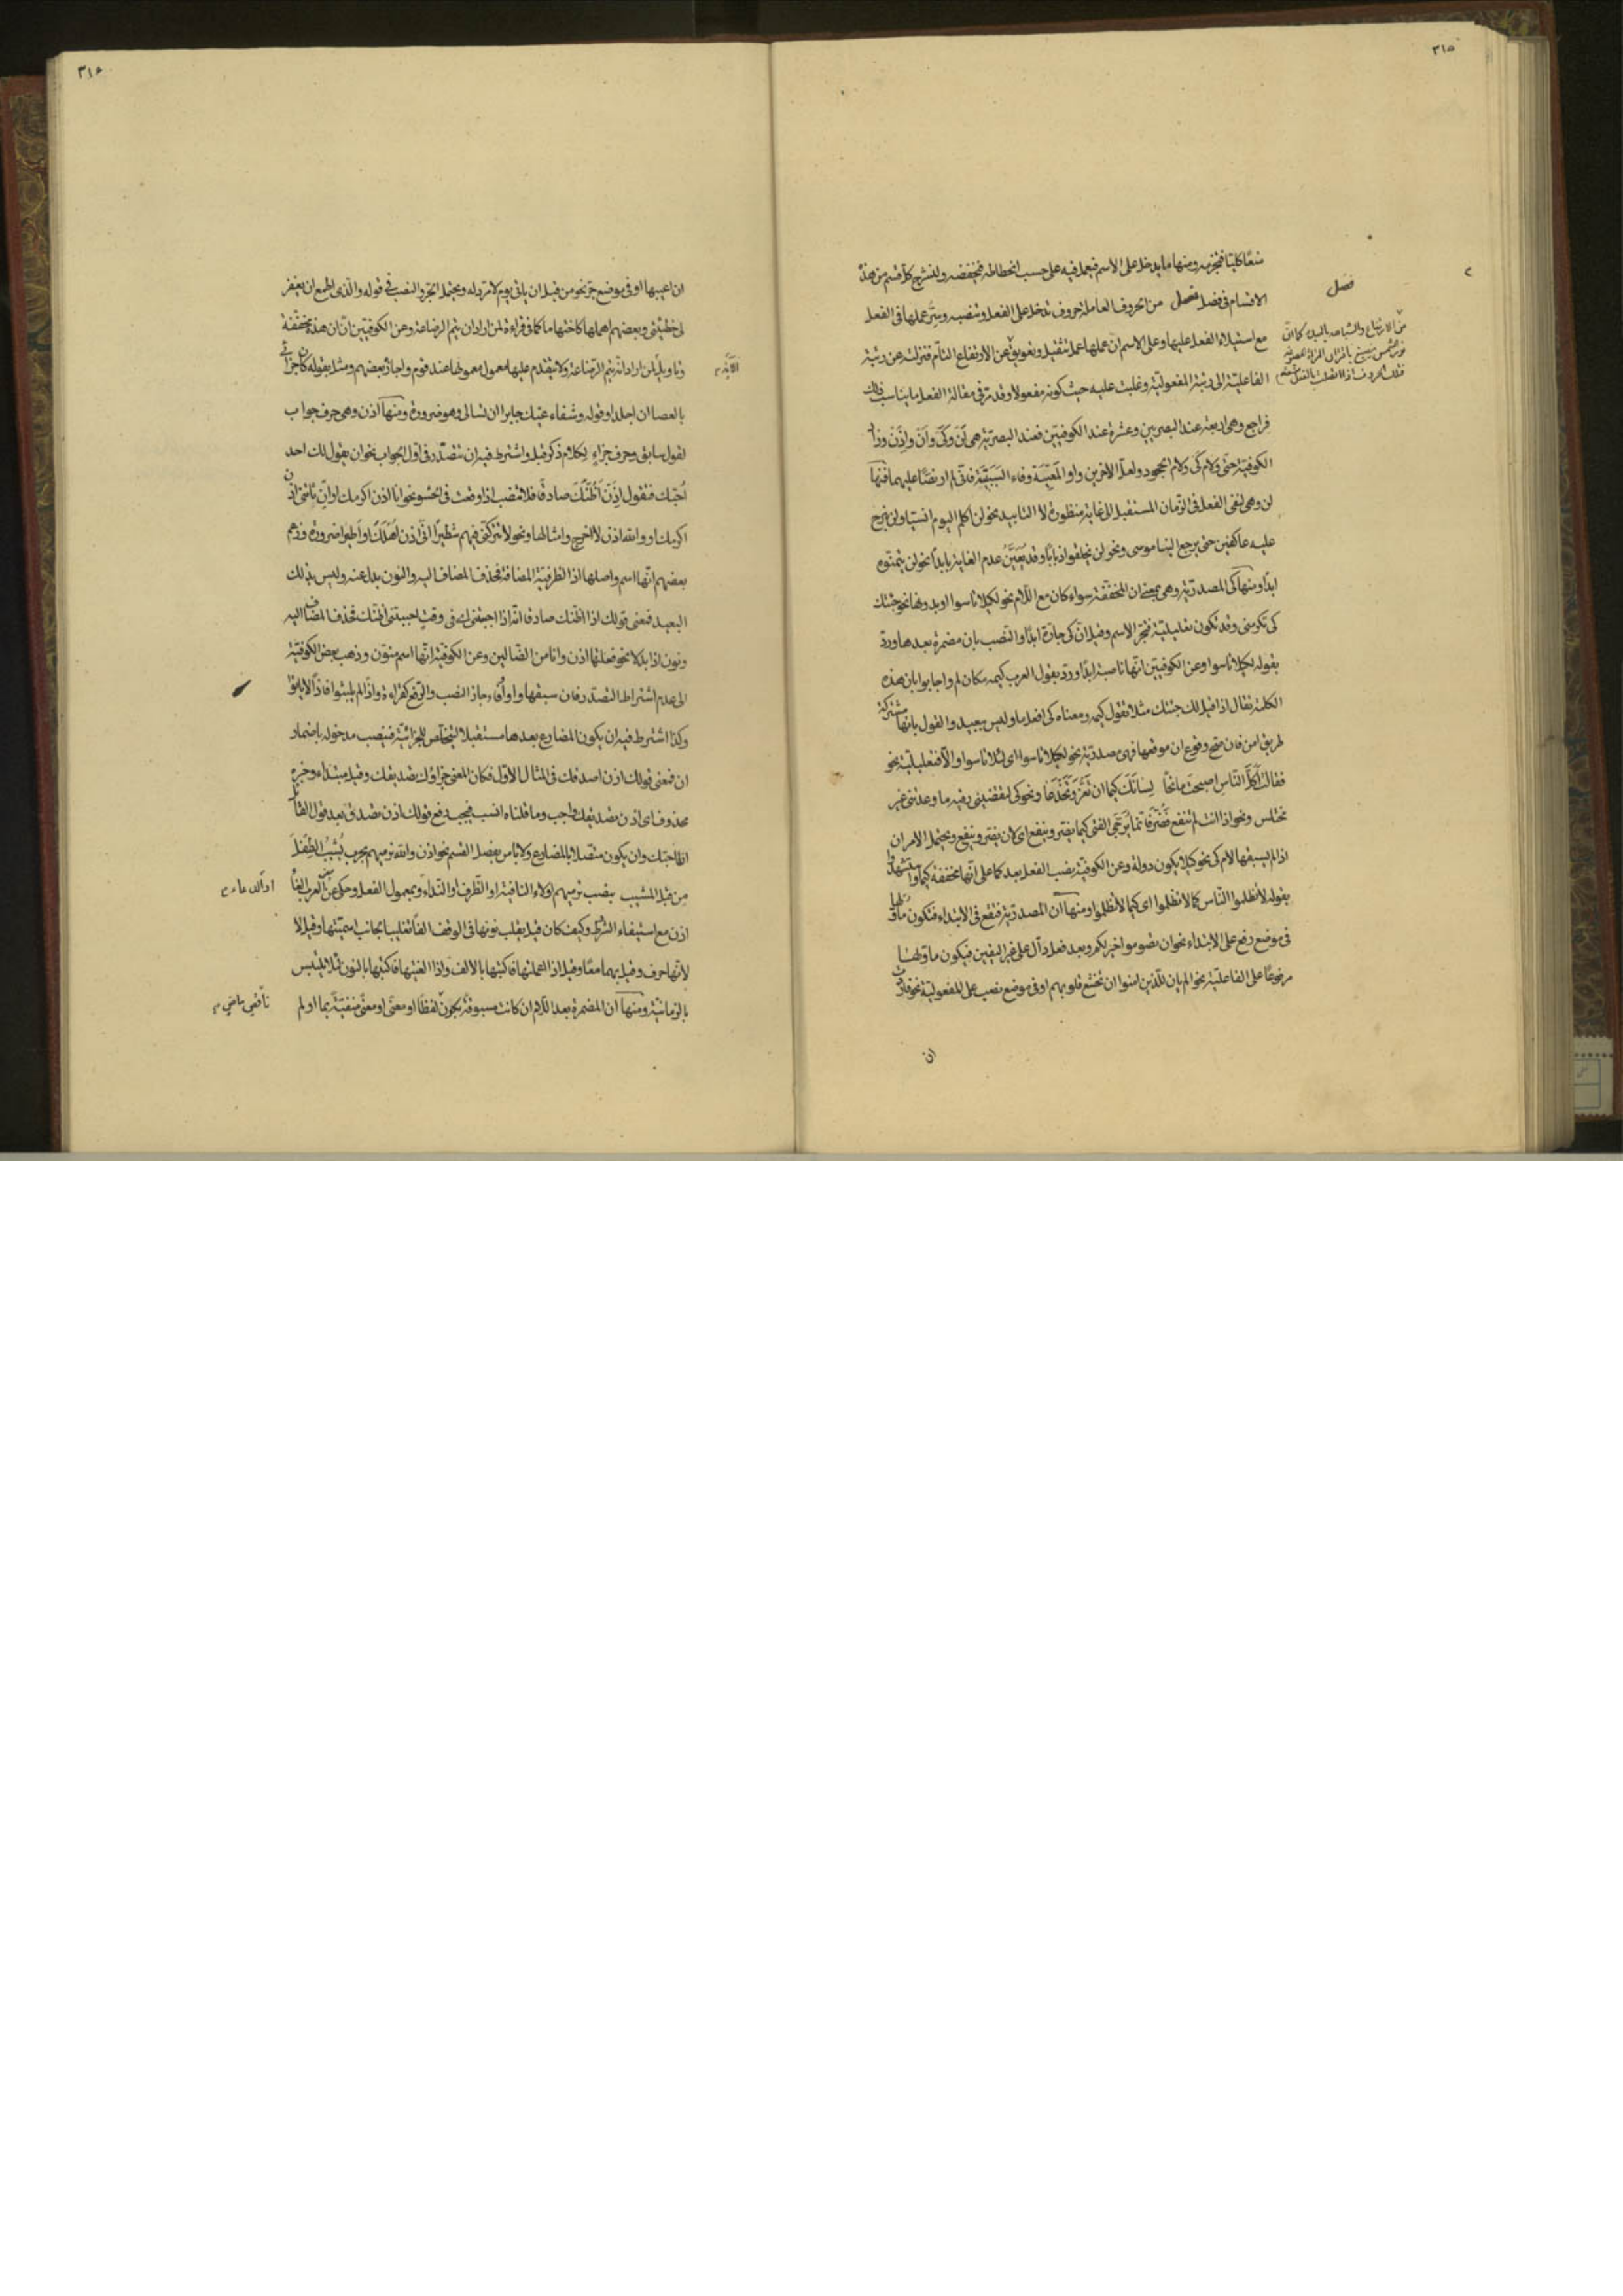 ٣١٥
منعًا كليّا فتجزمه ومنها ما يدخل على الاسم فيعمل فيه على حسب انحطاطه فيخفضه ولنشرح كل قسم من هذه
الاقسام فى فصل فصل من الحروف العاملة حروف تدخل على الفعل وتنصبه وسرّ عملها فى الفعل
مع استيلاء الفعل عليها وعلى الاسم ان عملها عمل تثقيل وتعويق عن الارتفاع التام فتنزله عن رتبة
الفاعلية الى رتبة المفعولية وغلبت عليه حيث كونه مفعولا وقد مرّ فى مقالة الفعل ما يناسب ذلك
فراجع وهى اربعة عند البصريين وعشرة عند الكوفيين فعند البصرية هى لَنْ وكَىْ وَاَنْ وَاِذَنْ وزاد
الكوفية حتى ولام كى ولام الجحود ولعل الاخرين واو المعيّة وفاء السببيّة فانى لم ار نصّا عليهما فمنها
لن وهى لنفى الفعل فى الزمان المستقبل الى غاية منظورة لا التابيد نحو لن اكلم اليوم انسيا ولن نبرح
عليه عاكفين حتى يرجع الينا موسى ونحو لن يخلقوا ذبابًا وقد يُعيَّن عدم الغاية بابدا نحو لن يتمنوه
ابدًا ومنها كى المصدرية وهى بمعنى ان المخففة سواء كان مع اللام نحو لكيلا تاسوا او بدونها نحو جئتك
كى تكرمنى وقد تكون تعليلية فتجر الاسم وقيل ان كى جارة ابدًا والنصب بان مضمرة بعدها وردّ
بقوله لكيلا تاسوا وعن الكوفيين انها ناصبة ابدًا وردّ بقول العرب كيمه مكان لم واجابوا بان هذه
الكلمة تقال اذا قيل لك جئتك مثلا تقول كيمه ومعناه كى افعل ما وليس ببعيد والقول بانها مشتركة
طريق امن فان صح وقوع ان موقعها فهى مصدرية نحو لكيلا تاسوا اى لئلا تاسوا والّا فتعليلية نحو
فقالت اكلَّ الناس اصبحت مانحًا لسانك كيما ان تغرّ وتخدعا ونحو كى لتقضينى رقية ما وعدتنى غير
مختلس ونحو اذا انت لم تنفع فضرّ فانما يرجّى الفتى كيما يضر وينفع اى لان يضر وينفع ويحتمل الامران
اذا لم يسبقها لام كى نحو كيلا يكون دولة وعن الكوفية نصب الفعل بعد كما على انها مخففة كيما واستشهدوا
بقوله لا تظلموا الناس كما لا تظلموا اى كيما لا تظلموا ومنها ان المصدرية فتقع فى الابتداء فتكون ما وّلها
فى موضع رفع على الابتداء نحو ان تصوموا خير لكم وبعد فعل دال على غير اليقين فيكون ما وّلها
مرفوعًا على الفاعلية نحو الم يان للذين امنوا ان تخشع قلوبهم او فى موضع نصب على المفعولية نحو فاردت
ان
فصل
٣١۶
ان اعيبها او فى موضع جرّ نحو من قبل ان ياتى يوم لا مرد له ويحتمل الجر والنصب فى قوله والذى اطمع ان يغفر
لى خطيئتى وبعضهم اهملها كاختها ما كما فى قراءة لمن اراد ان يتم الرضاعة وعن الكوفيين ان ان هذه مخففة
وتاويله لمن اراد انه يتم الرضاعة ولا يتقدم عليها معمول معمولها عند قوم واجازه بعضهم ومثله بقوله كان جزائى
بالعصا ان اجلدا وقوله وشفاء غيك جابرا ان تسالى وهو ضرورة ومنها اذن وهى حرف جواب
لقول سابق وحرف جزاءٍ لكلام ذكر قبل واشترط فيه ان تتصدّر فى اول الجواب نحو ان يقول لك احد
اُحبّك فتقول اِذَنْ اَظُنَّكَ صادقًا فلا تنصب اذا وقعت فى الحشو نحو انا اذن اكرمك او ان تاتنى اذن
اكرمك او والله اذن لا اخرج وامثالها ونحو لا تتركنّى فيهم شطيرًا انى اذن اهلكَ او اطيرا ضرورة وزعم
بعضهم انها اسم واصلها اذا الظرفية المضافة فحذف المضاف اليه والنون بدل عنه وليس بذلك
البعيد فمعنى قولك اذا اظنك صادقا انه اذا اجبتنى او فى وقت احببتنى اظنك فحذف المضاف اليه
ونون اذا بدلا نحو فعلتها اذن وانا من الضالين وعن الكوفية انها اسم منوّن وذهب بعض الكوفية
الى عدم اشتراط التصدر فان سبقها واو او فاء جاز النصب والرفع كقراءة واذًا لم يلبثوا فاذًا لا يؤتوا
وكذا اشترط فيه ان يكون المضارع بعدها مستقبلا ليتخلّص للجزائية فينصب مدخوله باضمار
ان فمعنى قولك اذن اصدقك فى المثال الاول فكان المعنى جزاؤك تصديقك وقيل مبتداء وخبره
محذوف اى اذن تصديقك واجب وما قلناه انسب فيجب رفع قولك اذن تصدق بعد قول القائل
انا احبّك وان يكون متصلا بالمضارع ولا باس بفصل القسم نحو اذن والله نرميهم بحرب يُشيبُ الطفلَ
من قبل المشيب بنصب نرميهم او لاء النافية او الظرف او النداء وبمعمول الفعل وحكى عن بعض العرب الغاء
اذن مع استيفاء الشرط وكيف كان قيل يقلب نونها فى الوقف الفًا تغليبا بجانب اسميّتها وقيل لا
لانها حرف وقيل بهما معًا وقيل اذا اعملتها فاكتبها بالالف واذا الغيتها فاكتبها بالنون لئلا يلتبس
بالزمانية ومنها ان المضمرة بعد اللام ان كانت مسبوقة بكون لفظًا او معنًى او معنًى منفيّة بما او لم
او الدعاء م